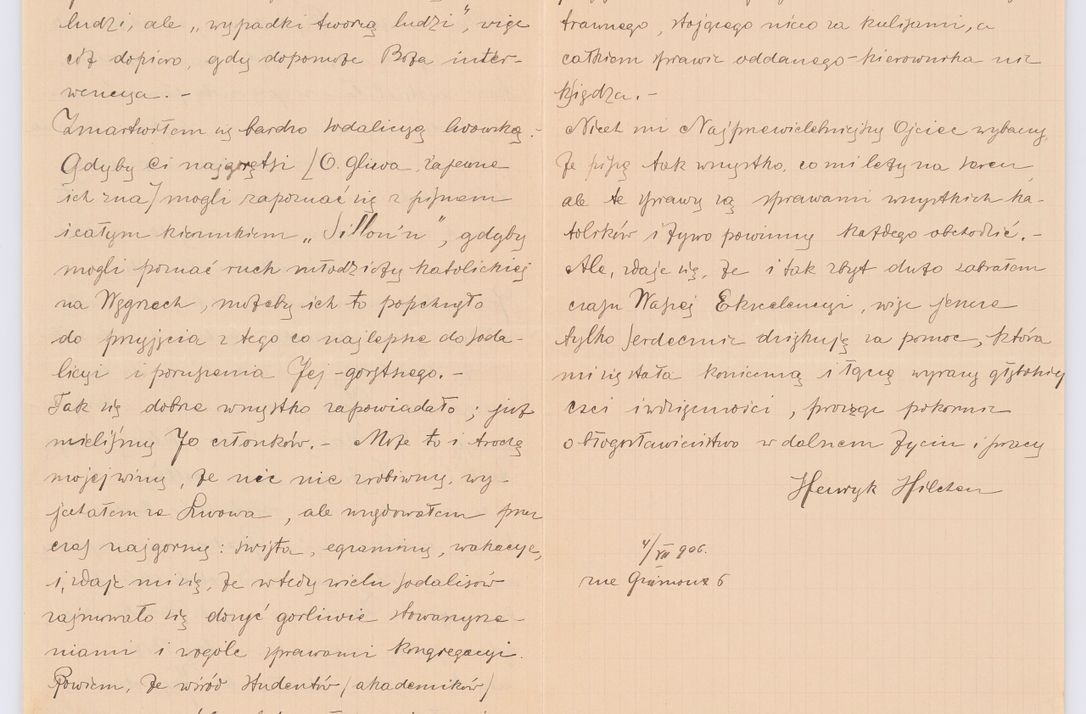 ludzi, ale „wypadki tworzą ludzi", więc
cóż dopiero, gdy dopomoże Boża inter-
wencya. -
Zmartwiłem się bardzo sodalicyą lwowską. -
Gdyby ci najgorętsi /O. gliwa zapewne
ich zna/ mogli zapoznać się z pismem
i całym kierunkiem „Sillon'u", gdyby
mogli poznać ruch młodzieży katolickiej
na Węgrzech, możeby ich to popchnęło
do przyjęcia z tego co najlepsze do soda-
licyi i poruszenia Jej - gorętszego. -
Tak się dobrze wszystko zapowiadało; już
mieliśmy 70 członków. - Może to i trochę
mojej winy, że nic nie zrobiwszy, wy-
jechałem ze Lwowa, ale urzędowałem przez
czas najgorszy: święta, egzaminy, wakacye,
i, zdaje mi się, że wtedy wielu sodalisów
zajmowało się dosyć gorliwie stowarzysze-
niami i wogóle sprawami kongregacyi.
Powiem, że wśród studentów /akademików/
trawnego, stojącego nieco za kulisami, a
całkiem sprawie oddanego - kierownika nie
księdza. -
Niech mi Najprzewielebniejszy Ojciec wybaczy,
że piszę tak wszystko, co mi leży na sercu,
ale te sprawy są sprawami wszystkich ka-
tolików i żywo powinny każdego obchodzić. -
Ale, zdaje się, że i tak zbyt dużo zabrałem
czasu Waszej Ekscelencyi, więc jeszcze
tylko serdecznie dziękuję za pomoc, która
mi się stała konieczną i łączę wyrazy głębokiej
czci i wdzięczności, prosząc pokornie
o błogosławieństwo w dalszem życiu i pracy
Henryk Hilchen
4/VII 906.
rue Grimoux 6